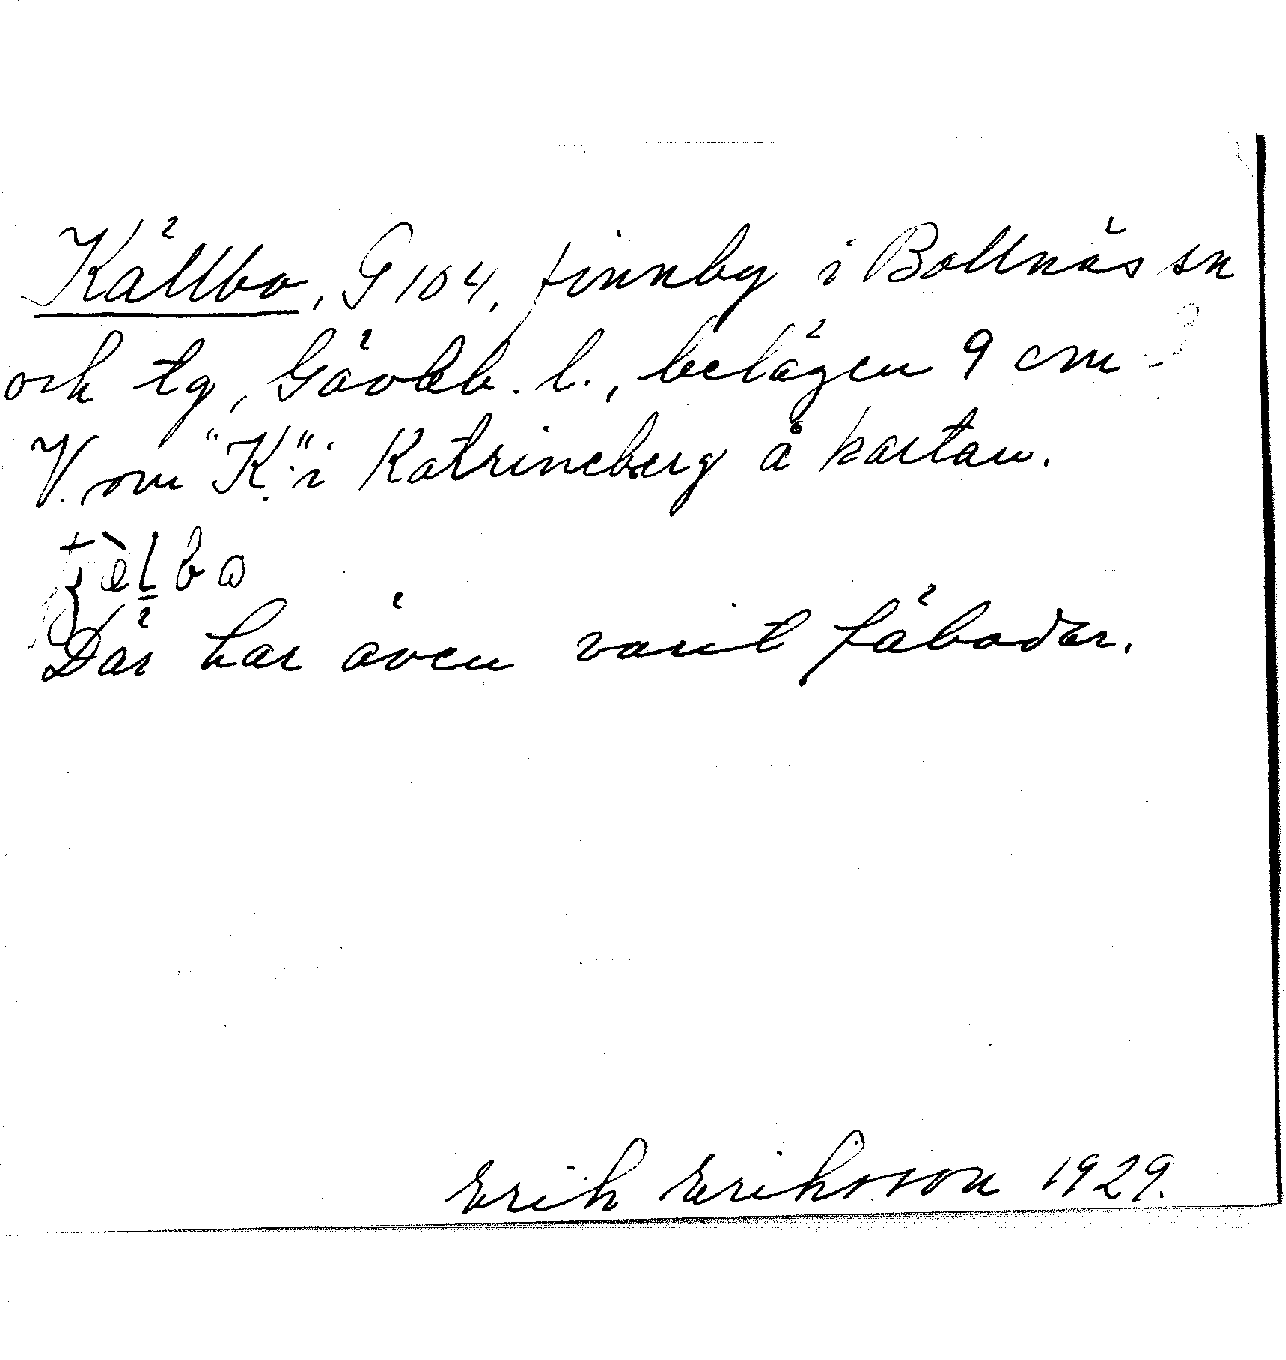 Källbo, G 104, finnby i Bollnäs sn
och tg, Gävleb. l., belägen 9 cm
V. om "K" i Katrineberg å kartan.
Där har även varit fäbodar.
Erik Eriksson 1929.